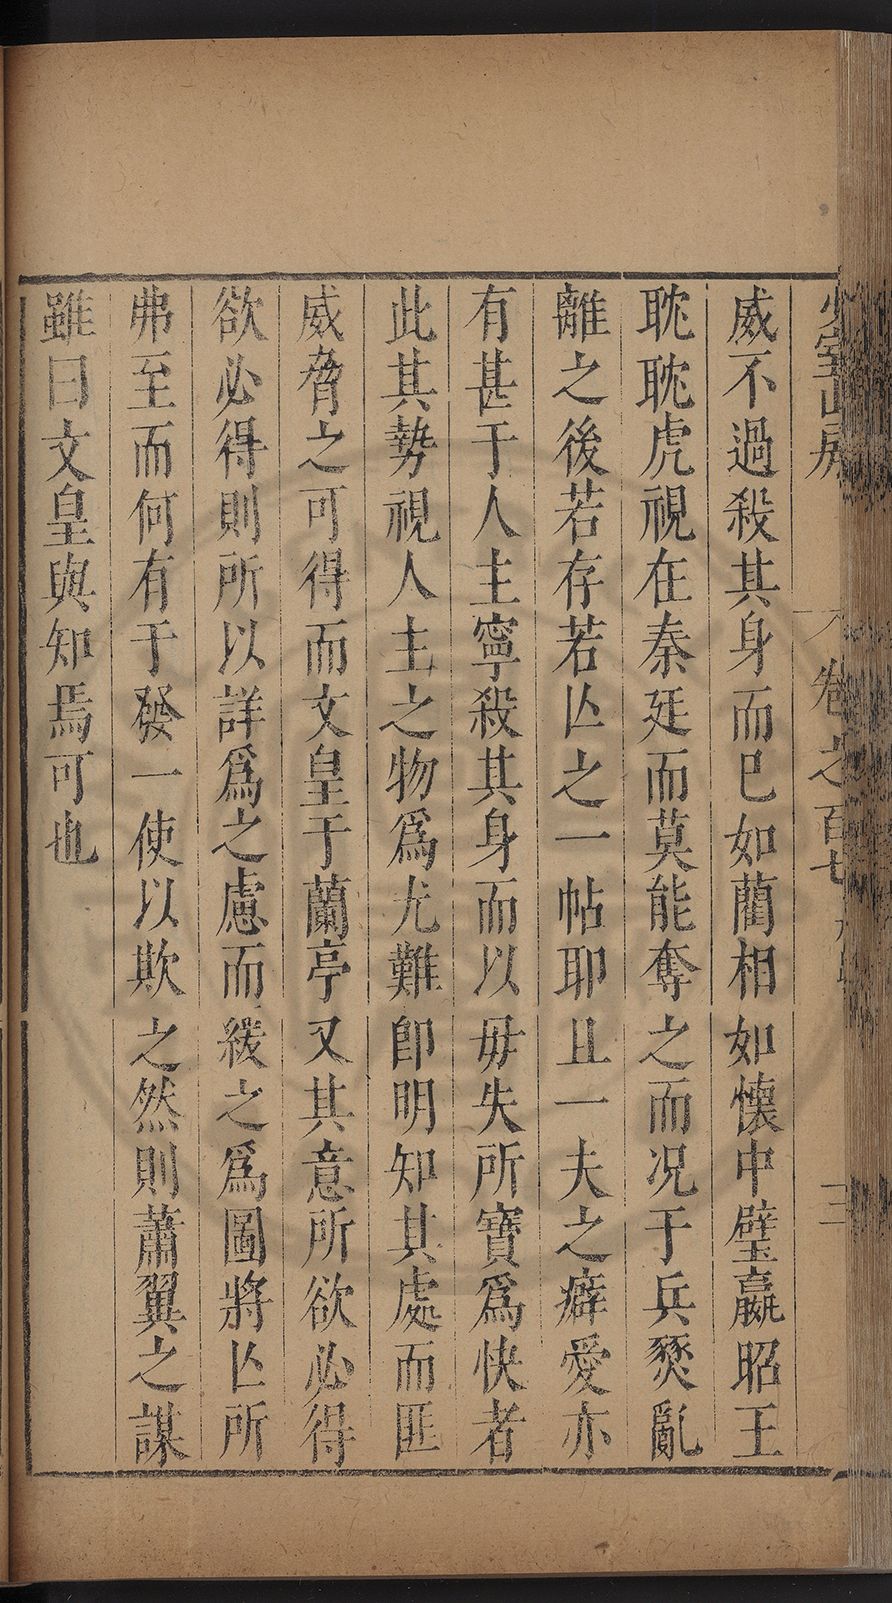 少室山房
卷之百七
三
威不過殺其身而已如藺相如懷中璧嬴昭王
耽耽虎視在秦廷而莫能奪之而況于兵燹亂
離之後若存若亾之一帖耶且一夫之癖愛亦
有甚于人主寧殺其身而以毋失所寶爲快者
此其勢視人主之物爲尤難卽明知其處而匪
威脅之可得而文皇于蘭亭又其意所欲必得
欲必得則所以詳爲之慮而緩之爲圖將亾所
弗至而何有于發一使以欺之然則蕭翼之謀
雖曰文皇與知焉可也